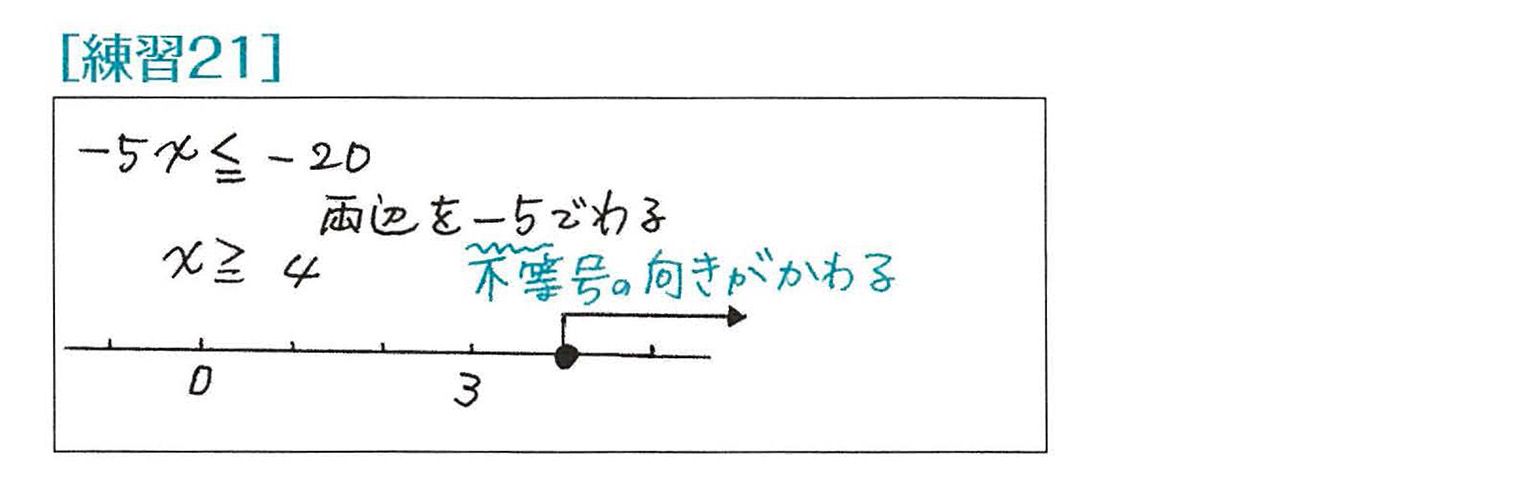 [練習21]
-5x≦-20
両辺を-5でわる
x≧4
不等号の向きがかわる
0 3